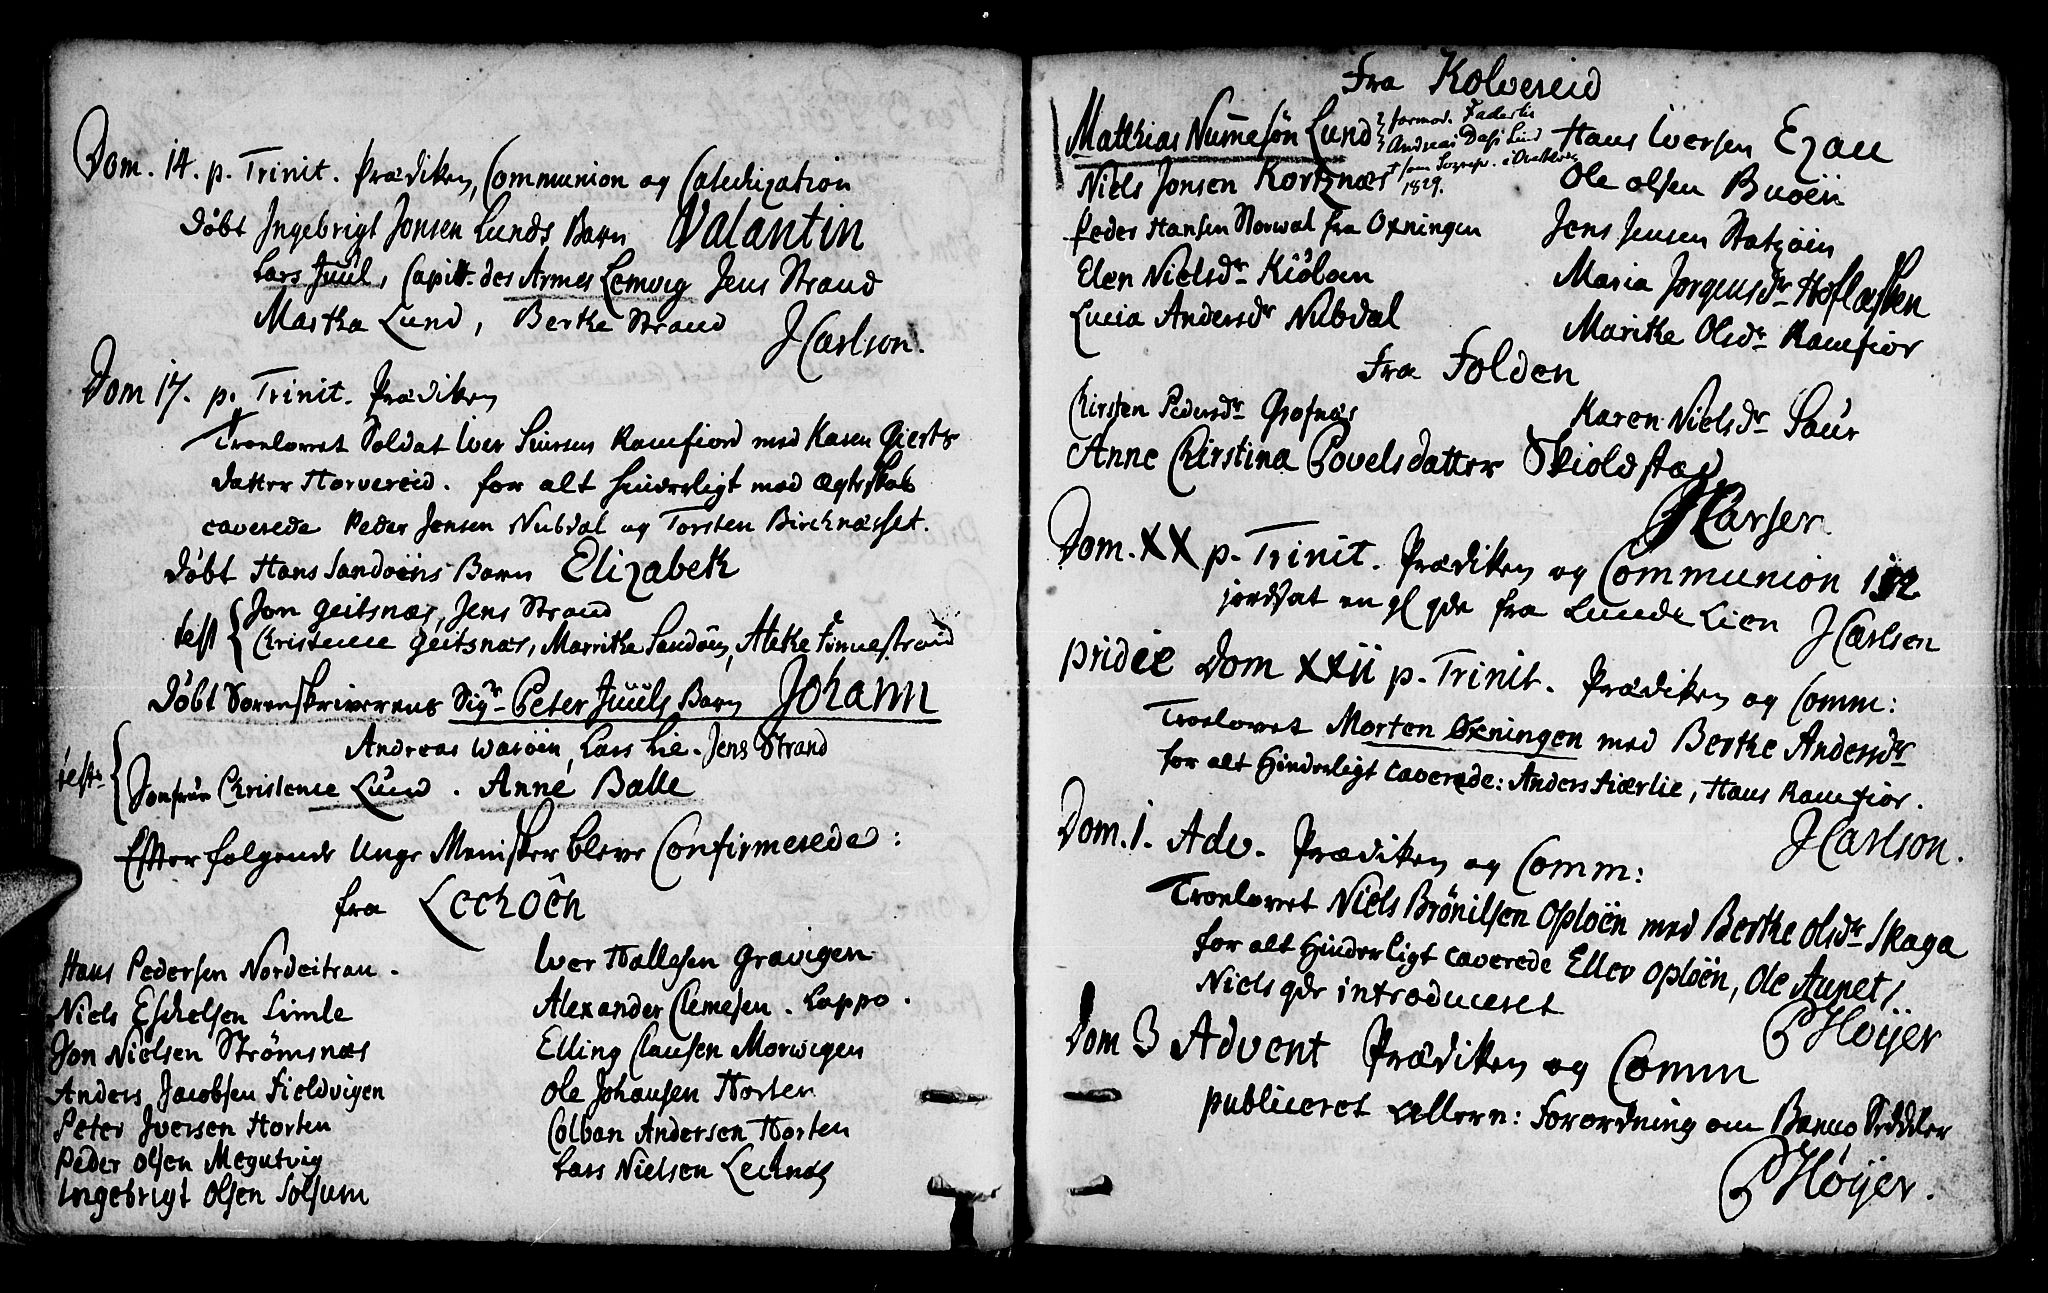 Dom. 14. p. Trinit. Prædiken, Communion og Catechization
Døbt Ingebrigt Jonsen Lunds Barn Valantin
Lars Juul, Capitt. des Armes Lemvig Jens Strand
Martha Lund, Berthe Strand
J Carlson.
Dom 17. p. Trinit. Prædiken
Troelovet Soldat Iver Siursen Ramfiord med Karen Gierts
datter Horvereid. for alt hinderligt med Egteskab
caverede Peder Jensen Nubdal og Torsten Bircknæsset.
Døbt Hans Sandöens Barn Elizabeth
test { Jon Geitsnæs, Jens Strand
Christence Geitsnæs, Marritha Sandöen, Atche Finnestrand
Døbt Sorenskriverens Sigr Peter Juuls Barn Johann
Andreas Waröen, Lars Lie. Jens Strand
test { Jomfrue Christence Lund. Anne Balle
Effter følgende Unge Menisker bleve Confirmerede:
fra Leckoën
Hans Pedersen Nordeitran.
Niels Eschelsen Limle
Jon Nielsen Strømsnæs
Anders Jacobsen Fieldvigen
Peter Iversen Horten
Peder Olsen Megutvig
Ingebrigt Olsen Solsum
Iver Hallesen Gravigen
Alexander Clemesen. Lappo.
Elling Clausen Morwigen
Ole Johansen Horten
Colban Andersen Horten
Lars Nielsen Leknds
Fra Kolvereid
Matthias Nummesøn Lund } formod. Faderlig
Andreas Dass Lund
+ som Sogepr. i
1829.
Niels Jonsen Kortznæs
Peder Hansen Norwal fra Oxningen
Elen Nielsdr Kiölan
Lucia Andersdr Nubdal
Hans Iversen Ezau
Ole Olsen Buöen
Jens Jensen Statzöen
Maria Jørgensdr Hoflæsten
Marithe Olsdr Ramfior
Fra Folden
Chirsten Pedersdr Grofnæs
Karen Nielsdr Saur
Anne Chirstina Povelsdatter Skioldstad
Dom. XX p. Trinit. Prædiken og Communion 132
jordsat en gl qde fra Lunde Lien J Carlsen
pridie Dom XXII p. Trinit. Prædiken og Comm:
Troelovet Morten Oxningen med Berthe Andersdr
for alt Hinderligt caverede: Anders Fiærlie, Hans Ramfior.
J Carlson.
Dom. 1. Adv. Prædiken og Comm:
Troelovet Niels Brönilsen Oploën med Berthe Olsdr Skaga
for alt Hinderligt caverede Eller Oploën, Ole Aunet/
Niels qde introduceret
P Höyer
Dom 3 Advent Prædiken og Comm
publiceret allern: Forordning om Banco Seddeler
P Höyer.